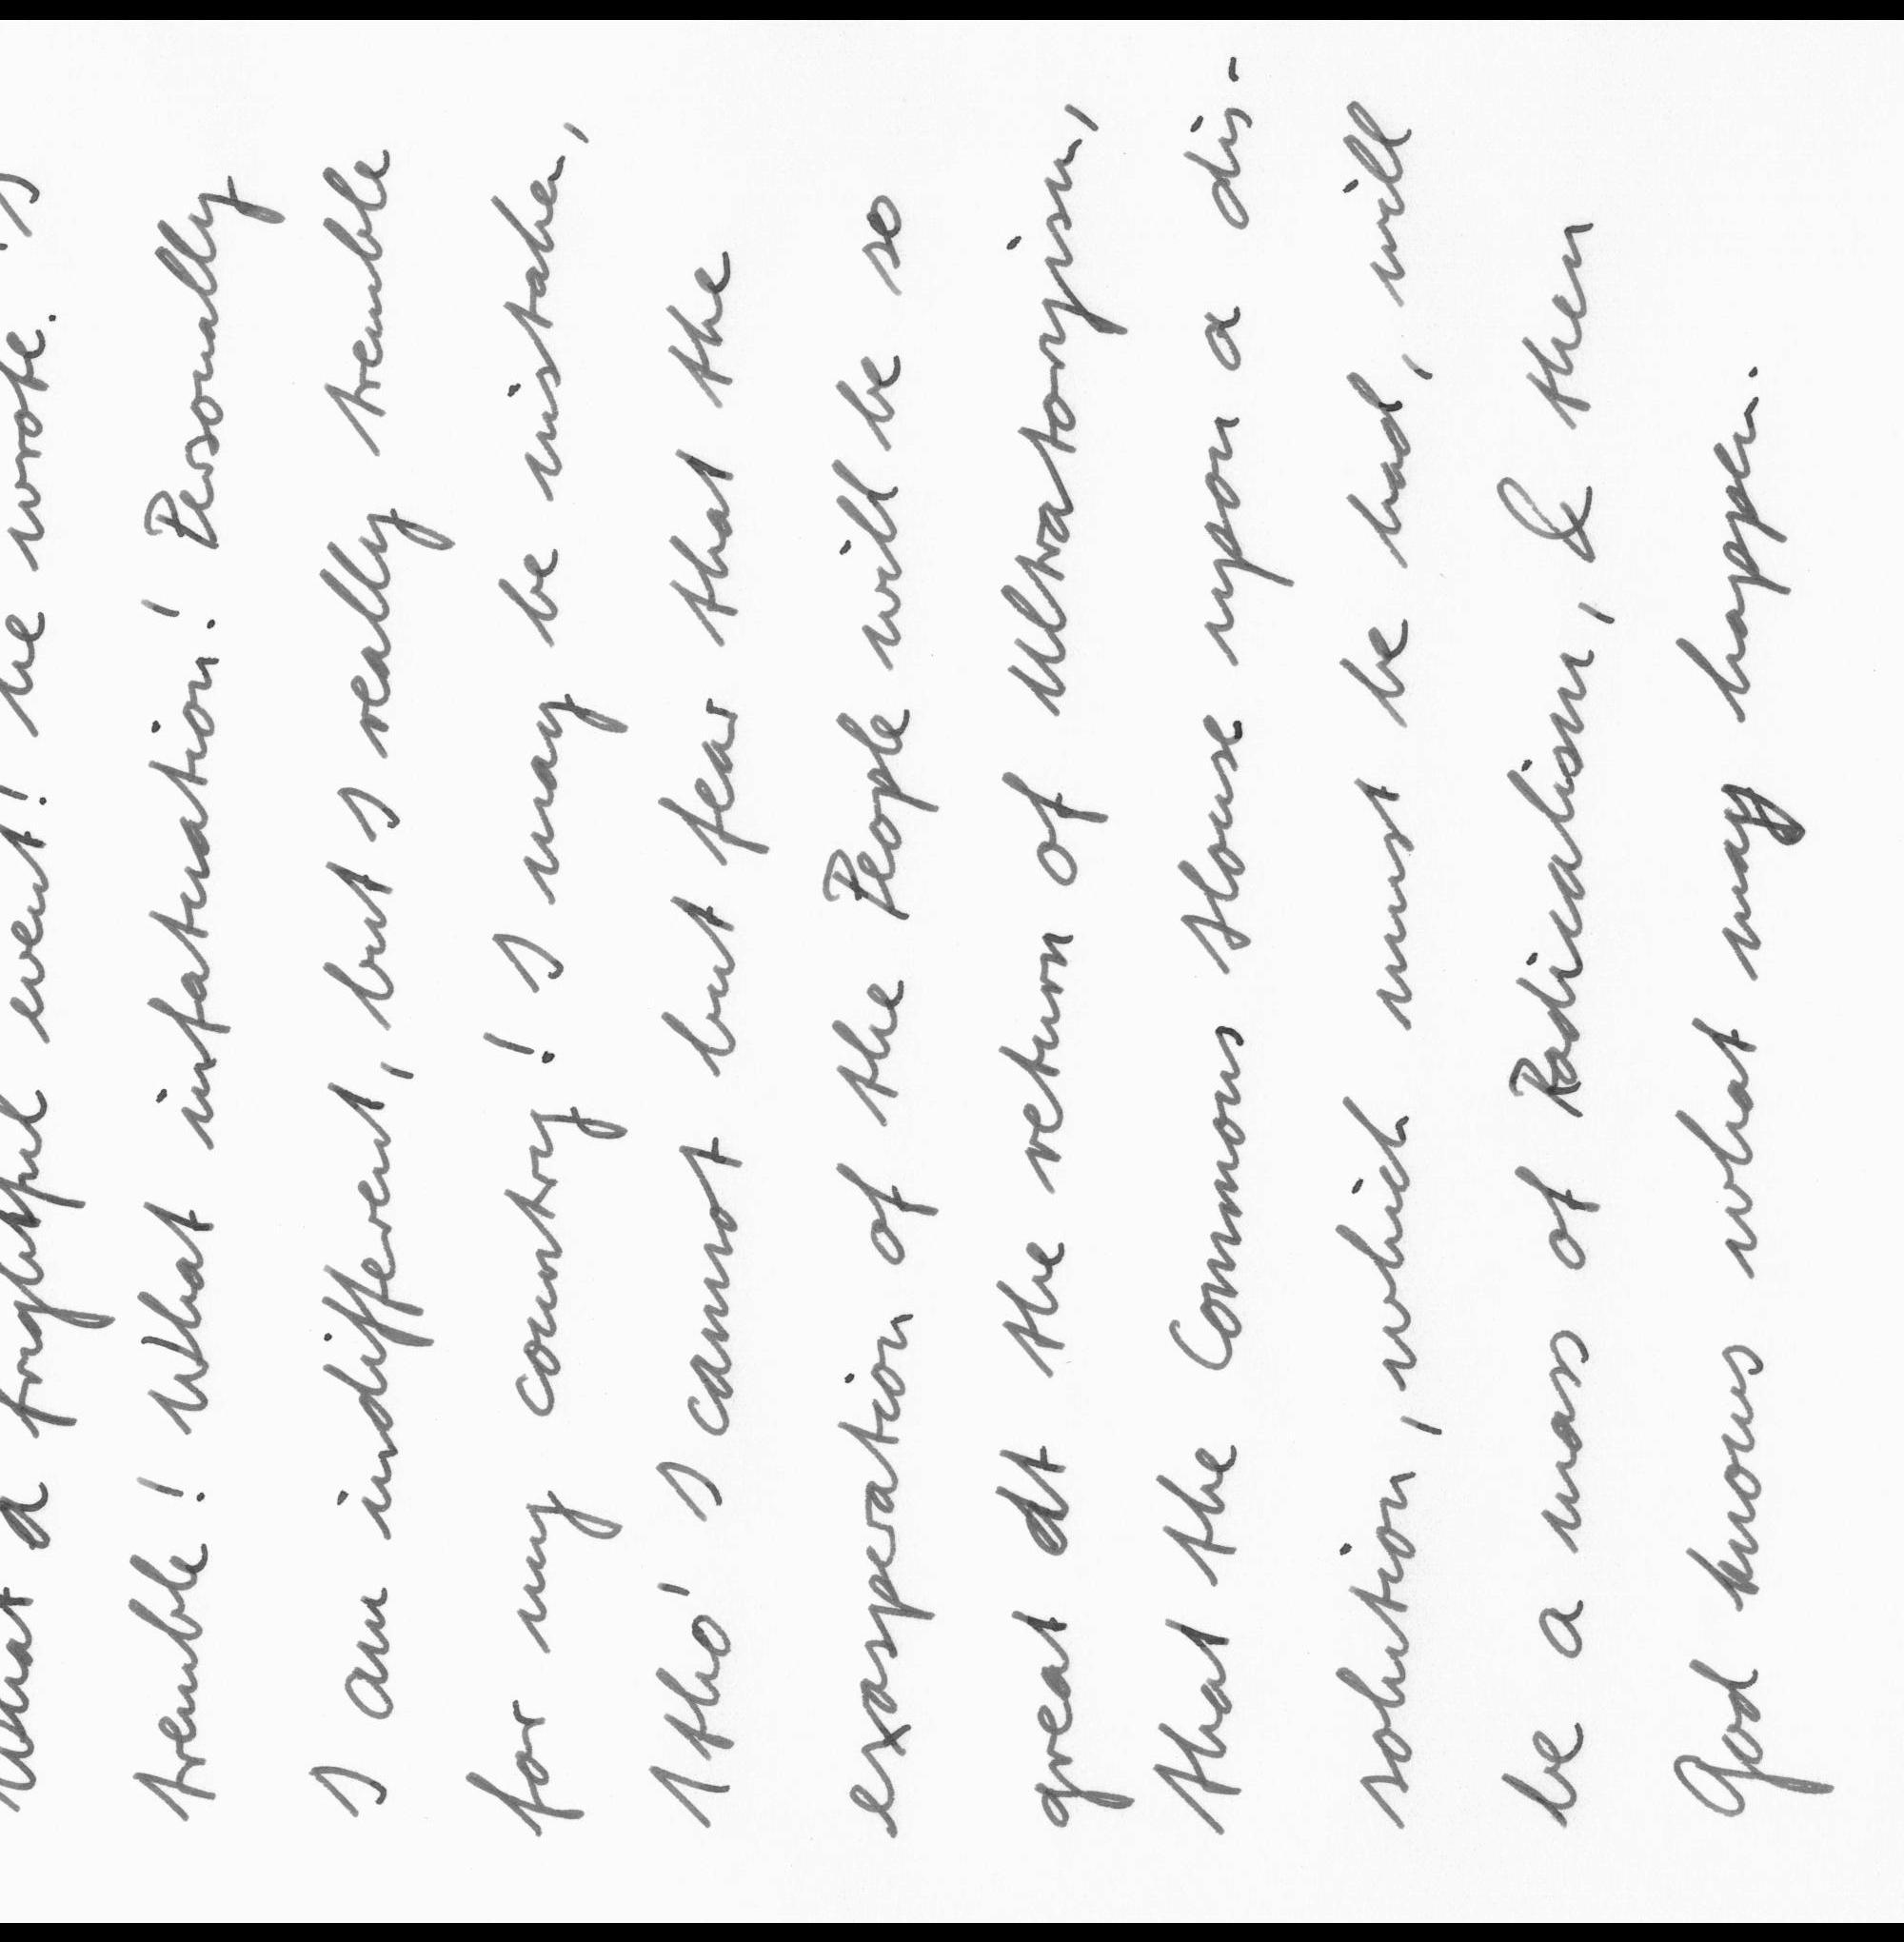 What a frightful event! he wrote. "I
tremble! What infatuation! Personally
I am indifferent, but I really tremble
for my country! I may be mistaken,
tho' I cannot but fear that the
exasperation of the People will be so
great at the return of Ultratoryism,
that the Commons House upon a dis-
solution, which must be had, will
be a mass of Radicalism, & then
God knows what may happen.